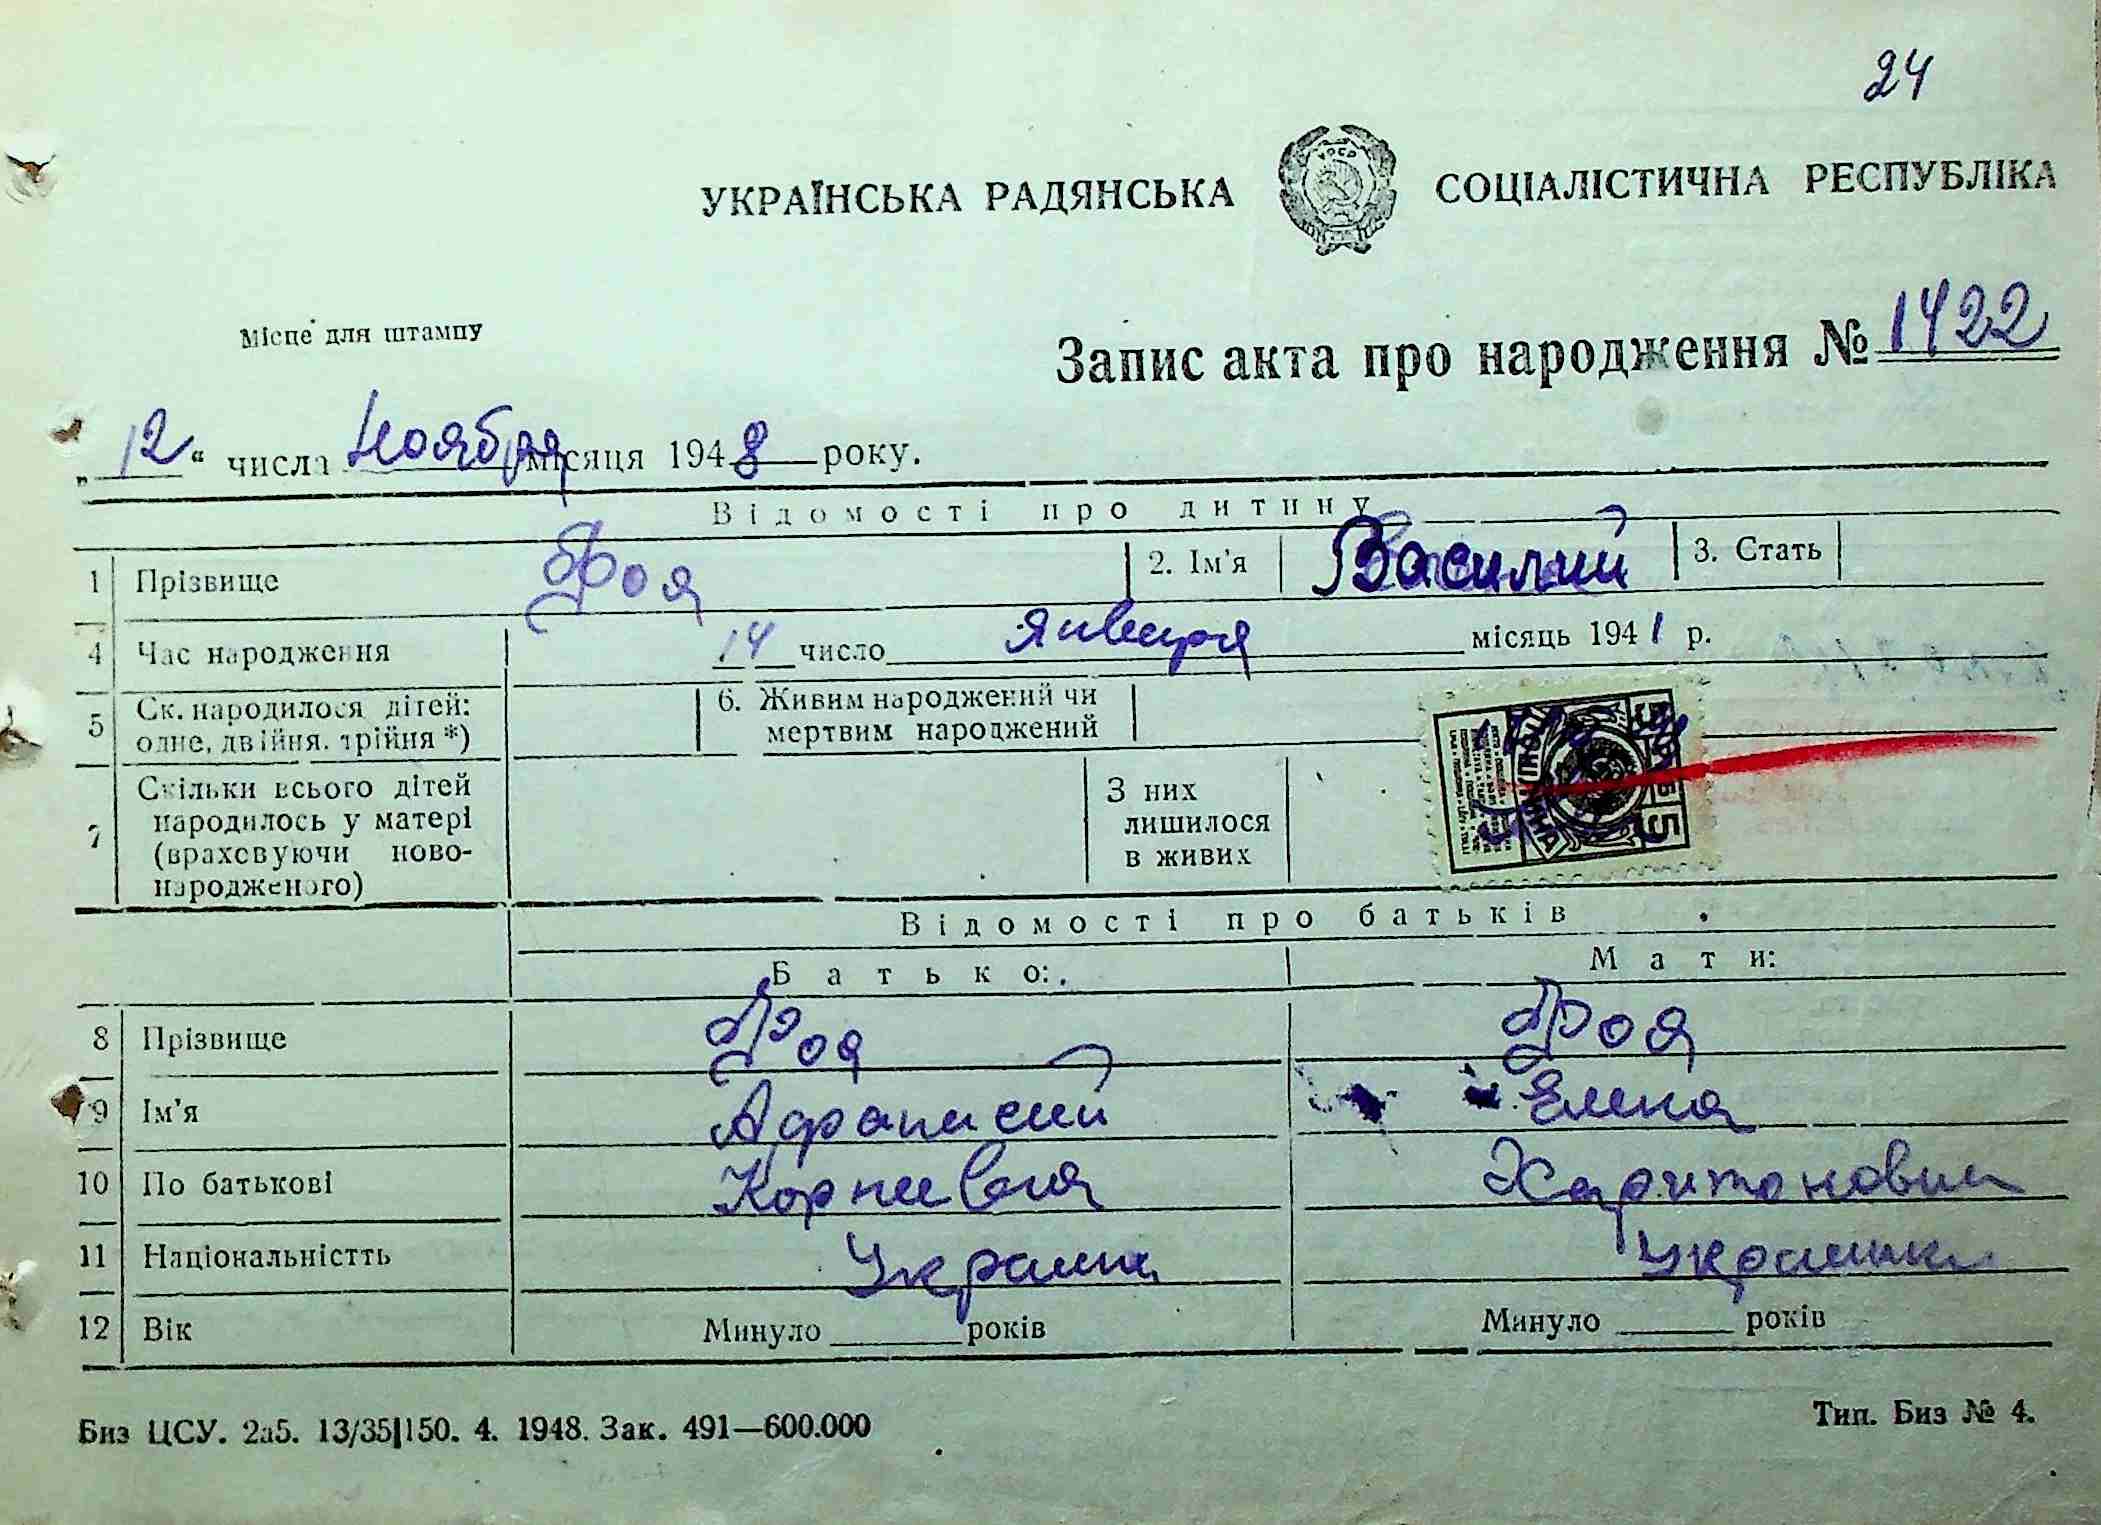 24
УКРАЇНСЬКА РАДЯНСЬКА СОЦІАЛІСТИЧНА РЕСПУБЛІКА
Місце для штампу
Запис акта про народження № 1422
„12“ числа Ноября місяця 1948 року.
Відомості про дитину
1 Прізвище Фоя 2. Ім'я Василий 3. Стать
4 Час народження 14 число января місяць 1941 р.
5 Ск. народилося дітей: одне, двійня, трійня *) 6. Живим народжений чи мертвим народжений
7 Скільки всього дітей народилось у матері (враховуючи новонародженого) З них лишилося в живих
5
Відомості про батьків
Батько: Мати:
8 Прізвище Фоя Фоя
9 Ім'я Афанасий Елена
10 По батькові Корнеевич Харитоновна
11 Національністть Украин Украинка
12 Вік Минуло років Минуло років
Биз ЦСУ. 2а5. 13/35|150. 4. 1948. Зак. 491—600.000 Тип. Биз № 4.